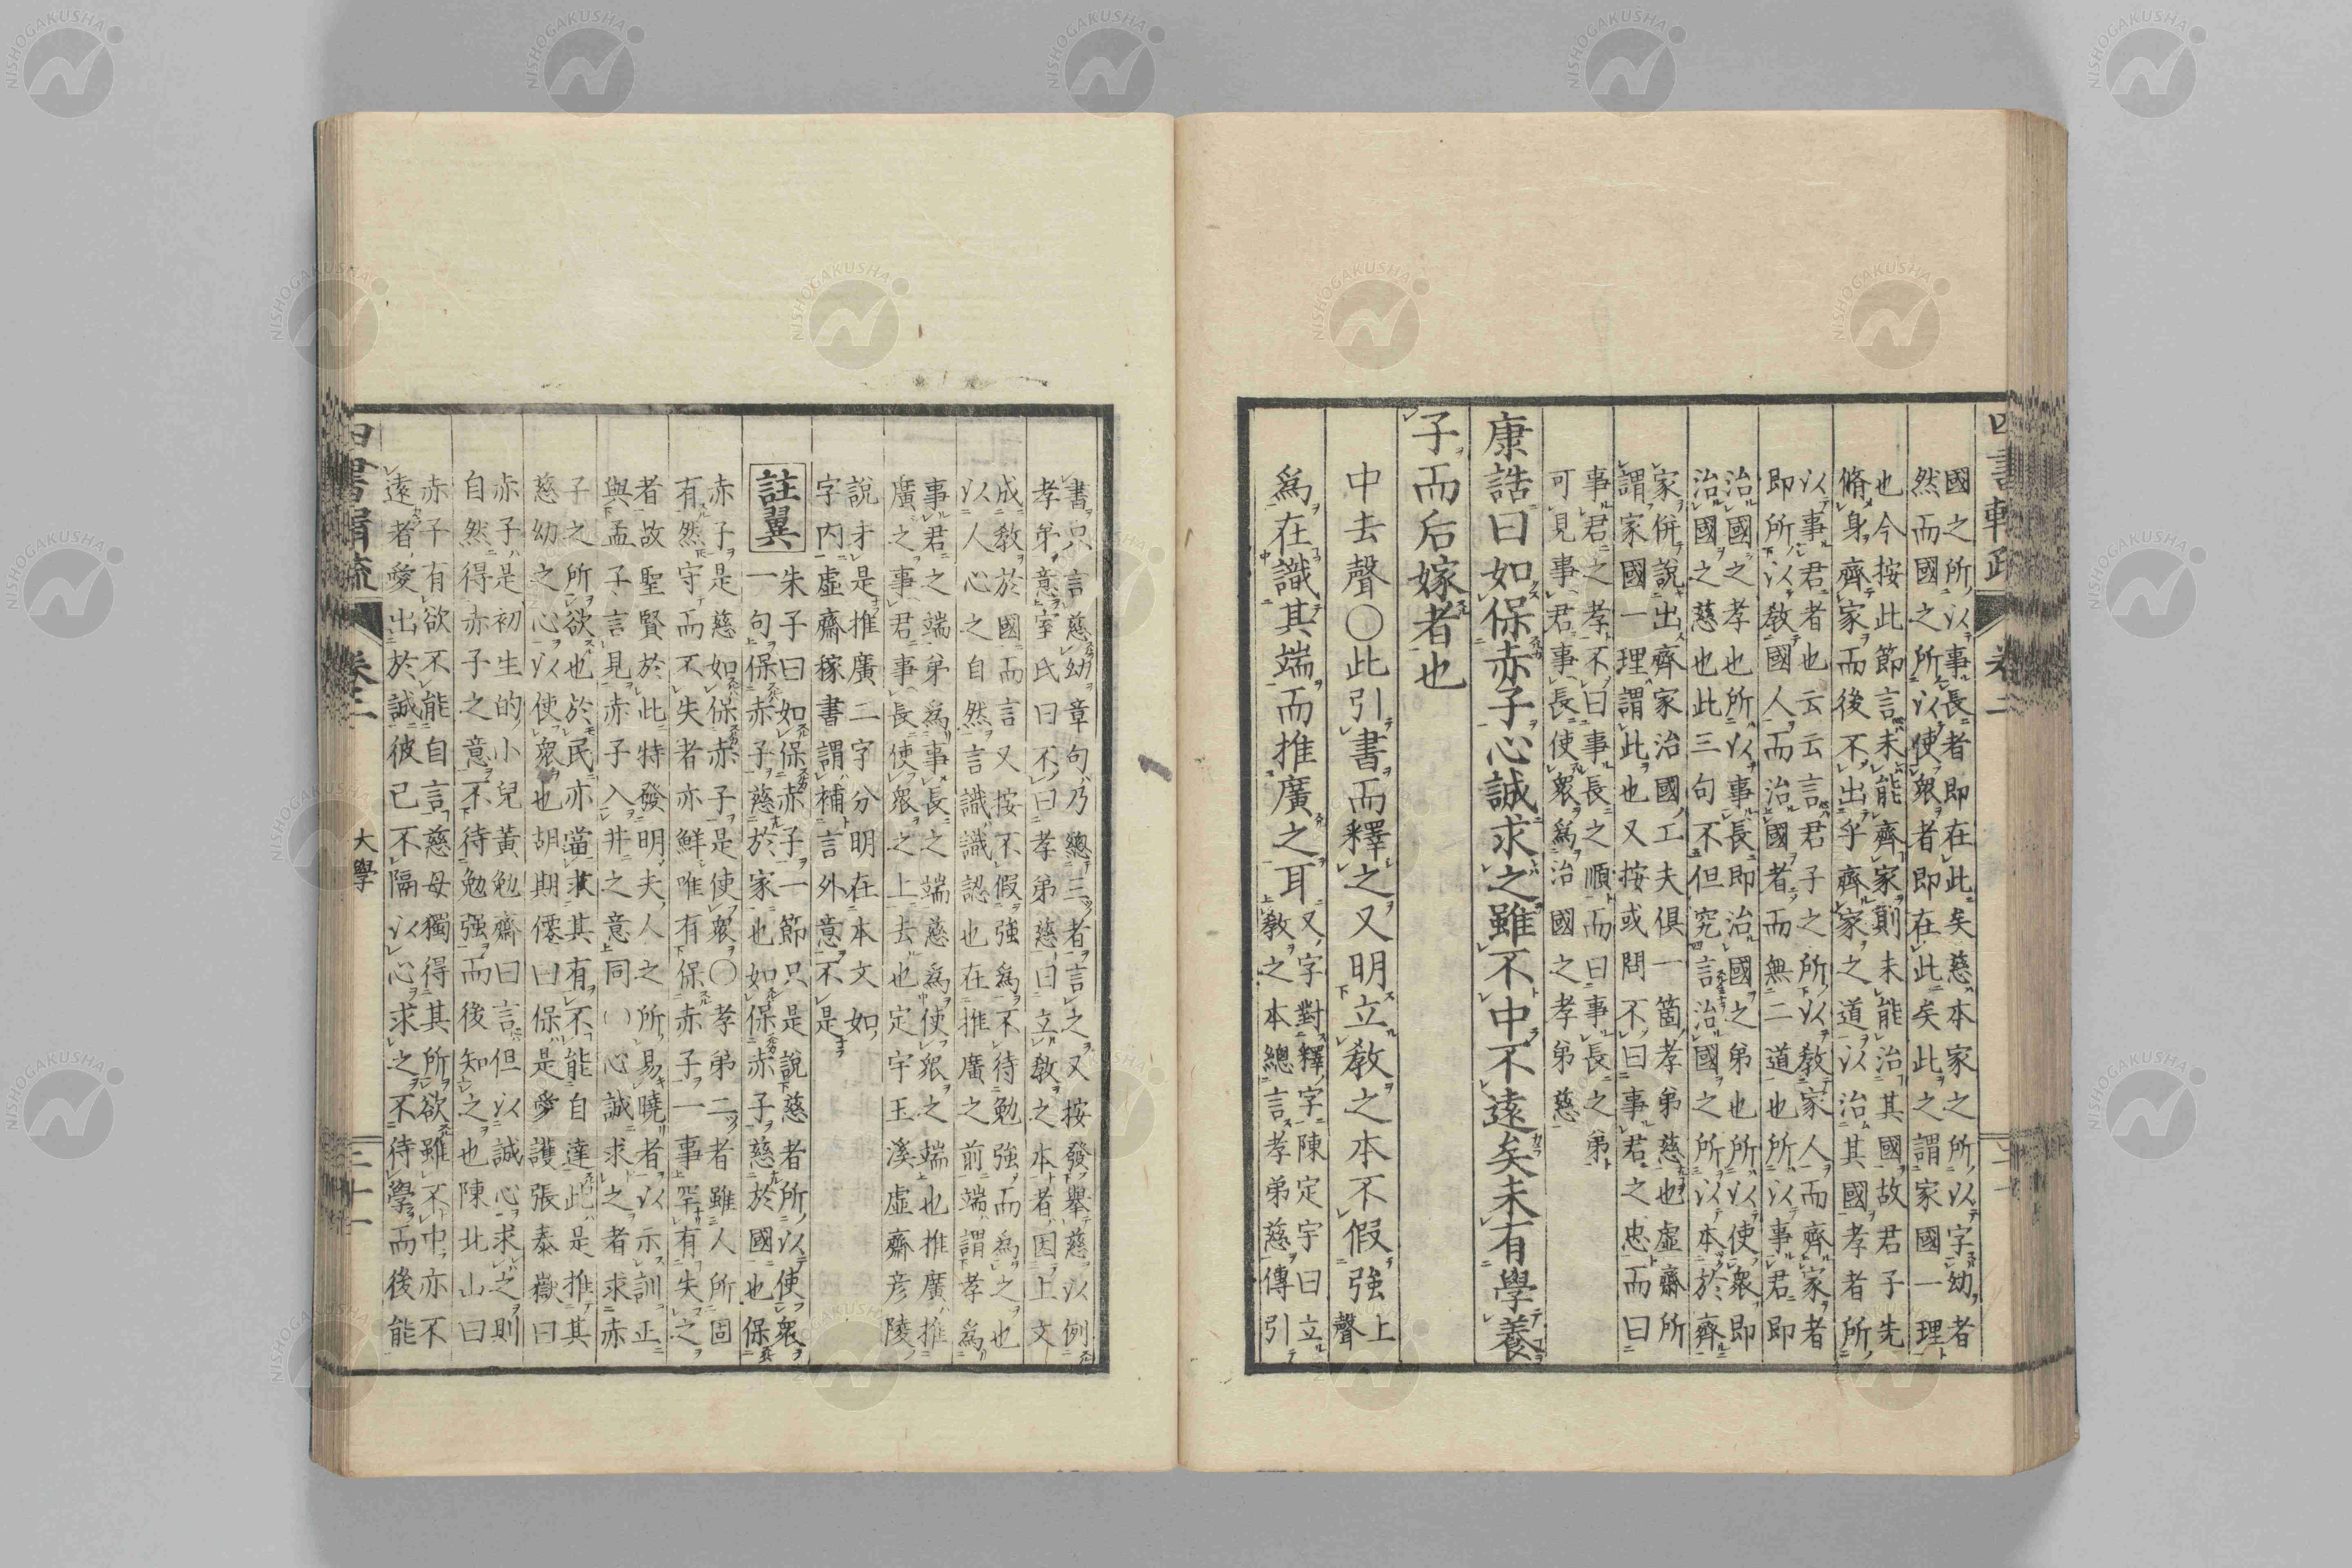 國之所以事長者即在此矣慈本家之所以字幼者
然而國之所以使衆者即在此矣此之謂家國一理
也今按此節言未能齊家則未能治其國故君子先
脩身齊家而後不出乎齊家之道以治其國孝者所
以事君者也云云言君子之所以教家人而齊家者
即所以教國人而治國者而無二道也所以事君即
治國之孝也所以事長即治國之弟也所以使衆即
治國之慈也此三句不但究言治國之所以本於齊
家併說出齊家治國工夫俱一箇孝弟慈也虛齋所
謂家國一理謂此也又按或問不曰事君之忠而曰
事君之孝不曰事長之順而曰事長之弟
可見事君事長使衆爲治國之孝弟慈
康誥曰如保赤子心誠求之雖不中不遠矣未有學養
子而后嫁者也
中去聲○此引書而釋之又明立教之本不假強上聲
爲在識其端而推廣之耳
又字對釋字陳定宇曰立
教之本總言孝弟慈傳引
書只言慈幼章句乃總三者言之又按發舉慈以例
孝弟意室氏曰不曰孝弟慈曰立教之本者因上文
成教於國而言又按不假強爲不待勉強而爲之也
以人心之自然言識識認也在推廣之前端謂孝爲
事君之端弟爲事長之端慈爲使衆之端也推廣推
廣之事君事長使衆之上去也定宇玉溪虛齋彦陵
說才是推廣二字分明在本文如
字内虛齋稼書謂補言外意不是
註翼
朱子曰如保赤子一節只是說慈者所以使衆
一句保赤子慈於家也如保赤子慈於國也保
赤子是慈如保赤子是使衆○孝弟二者雖人所固
有然守而不失者亦鮮唯有保赤子一事罕有失之
者故聖賢於此特發明夫人之所易曉者以示訓正
與孟子言見赤子入井之意同○心誠求之者求赤
子之所欲也於民亦當求其有不能自達此是推其
慈幼之心以使衆也胡期僊曰保是愛護張泰嶽曰
赤子是初生的小兒黃勉齋曰言但以誠心求之則
自然得赤子之意不待勉强而後知之也陳北山曰
赤子有欲不能自言慈母獨得其所欲雖不中亦不
遠者愛出於誠彼已不隔以心求之不待學而後能
大學